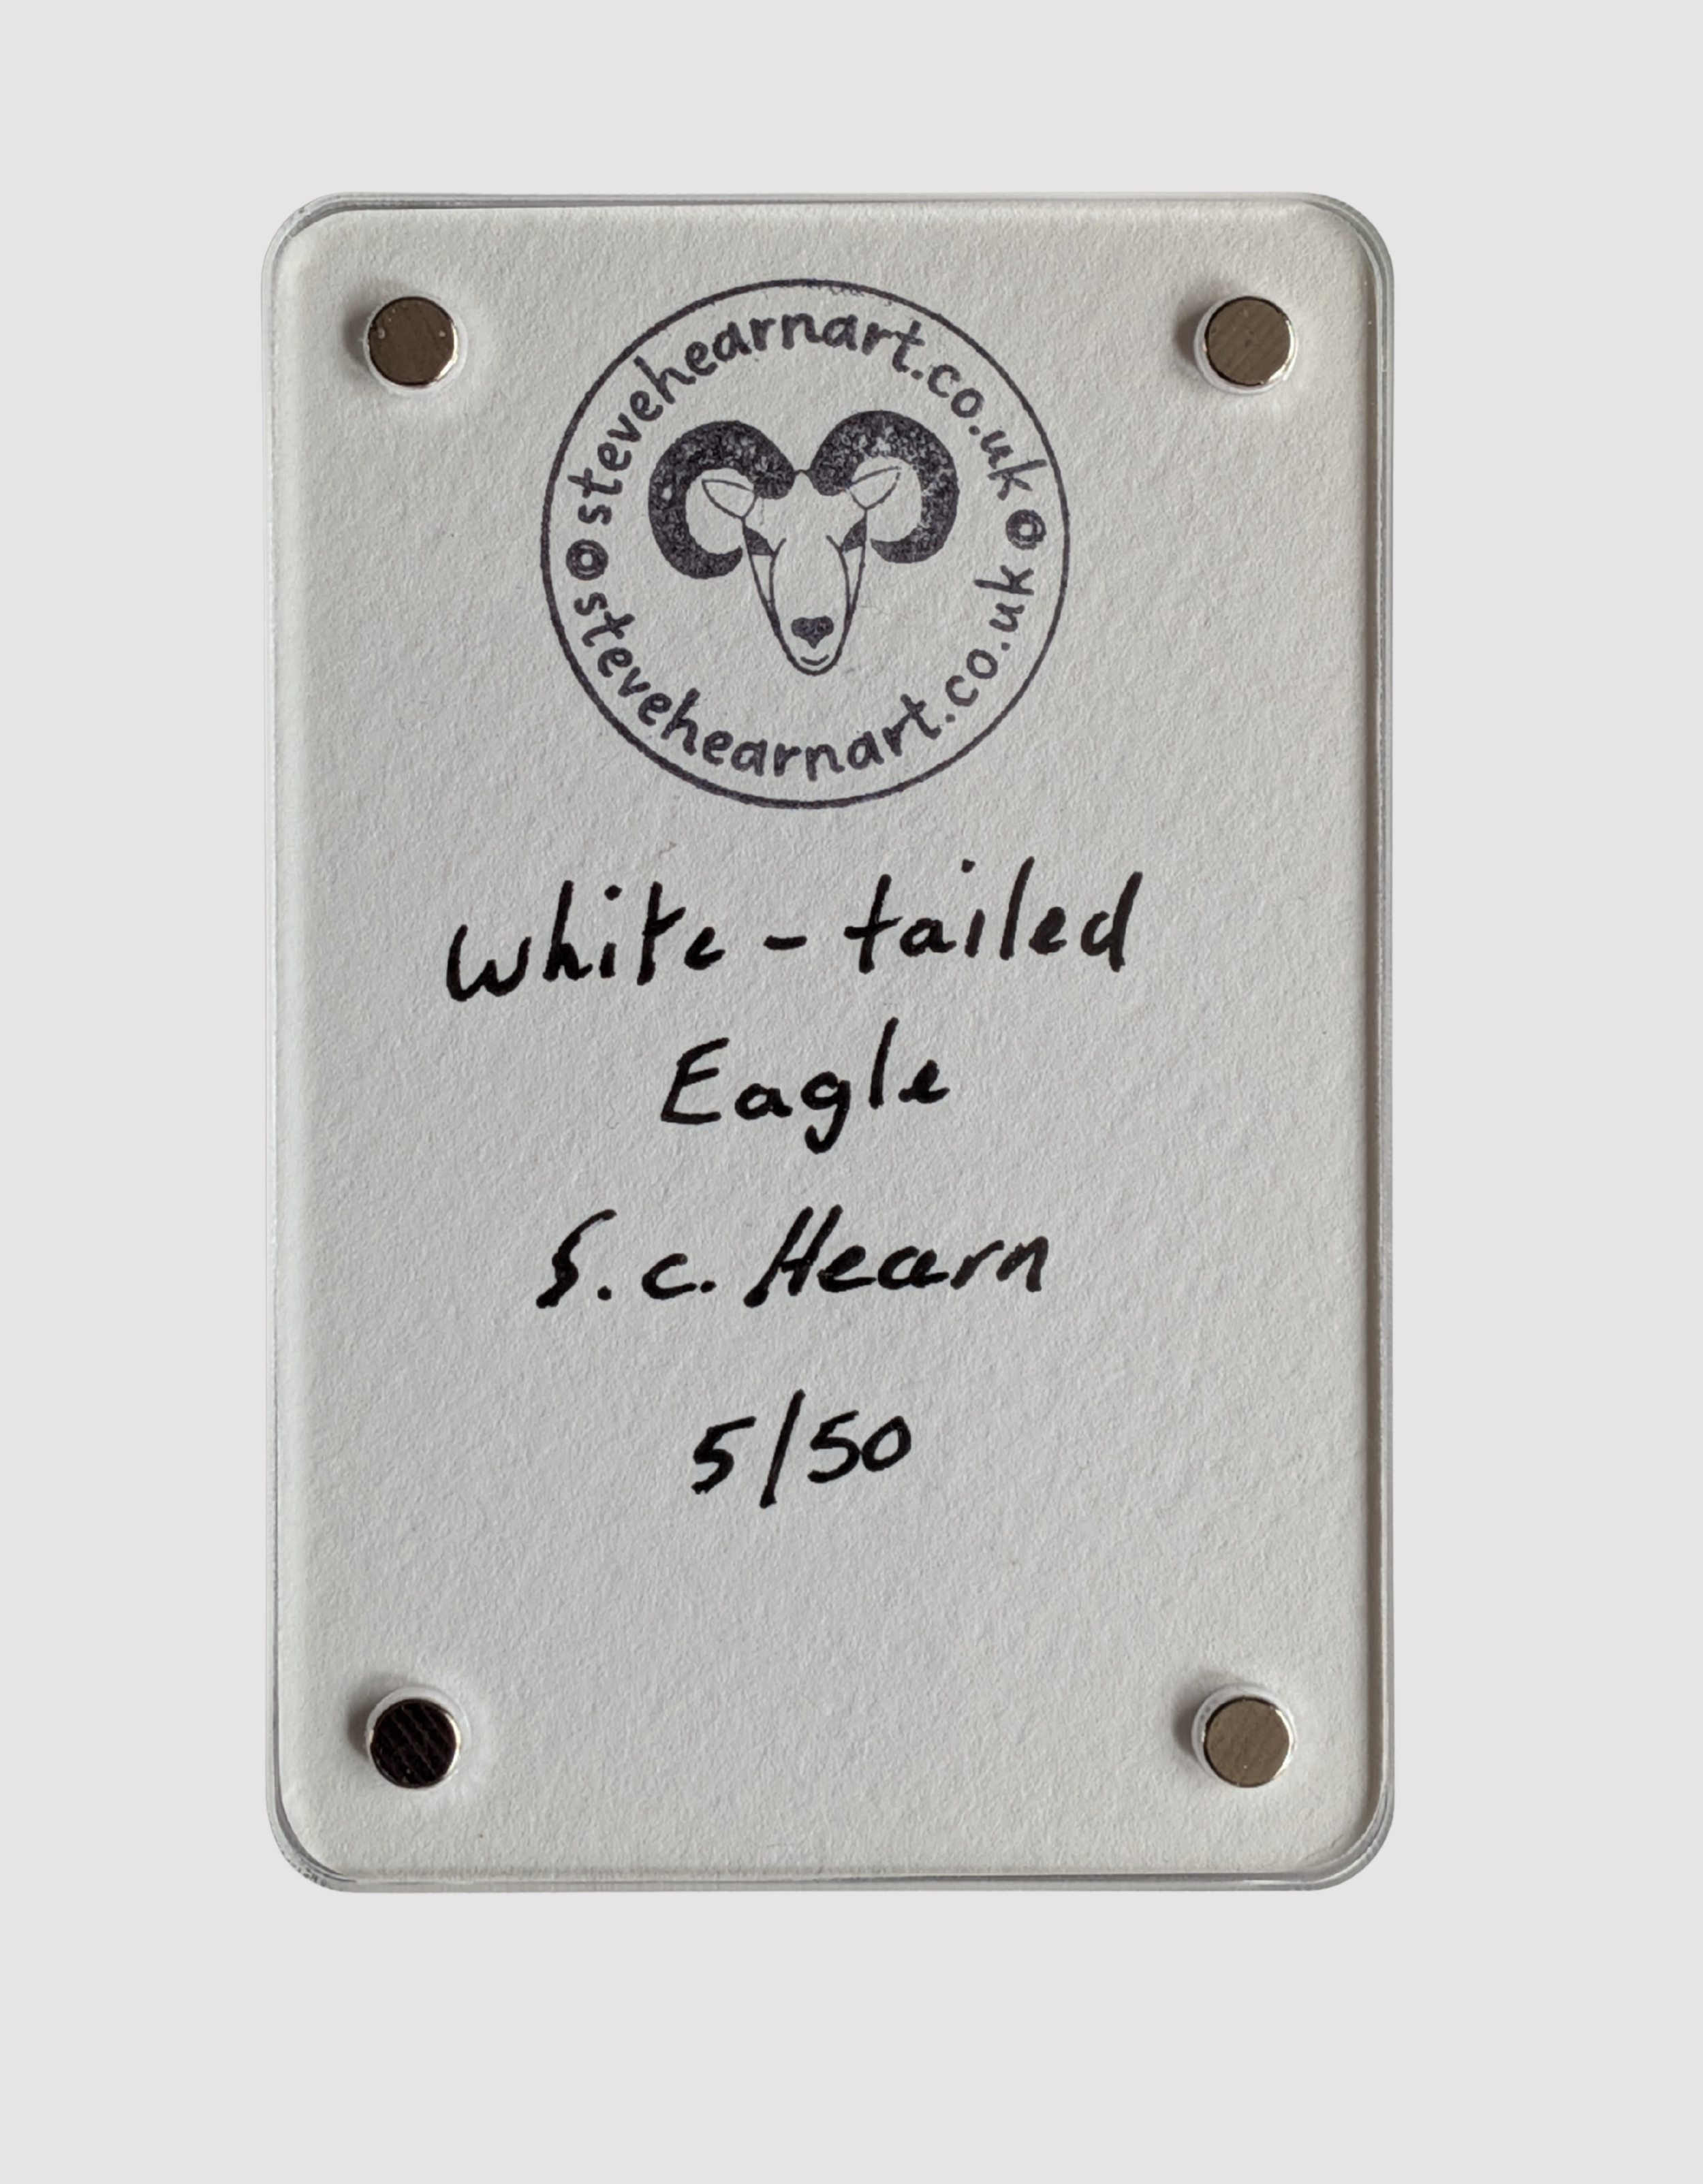 stevehearnart.co.uk
stevehearnart.co.uk
White-tailed
Eagle
S.C. Hearn
5/50